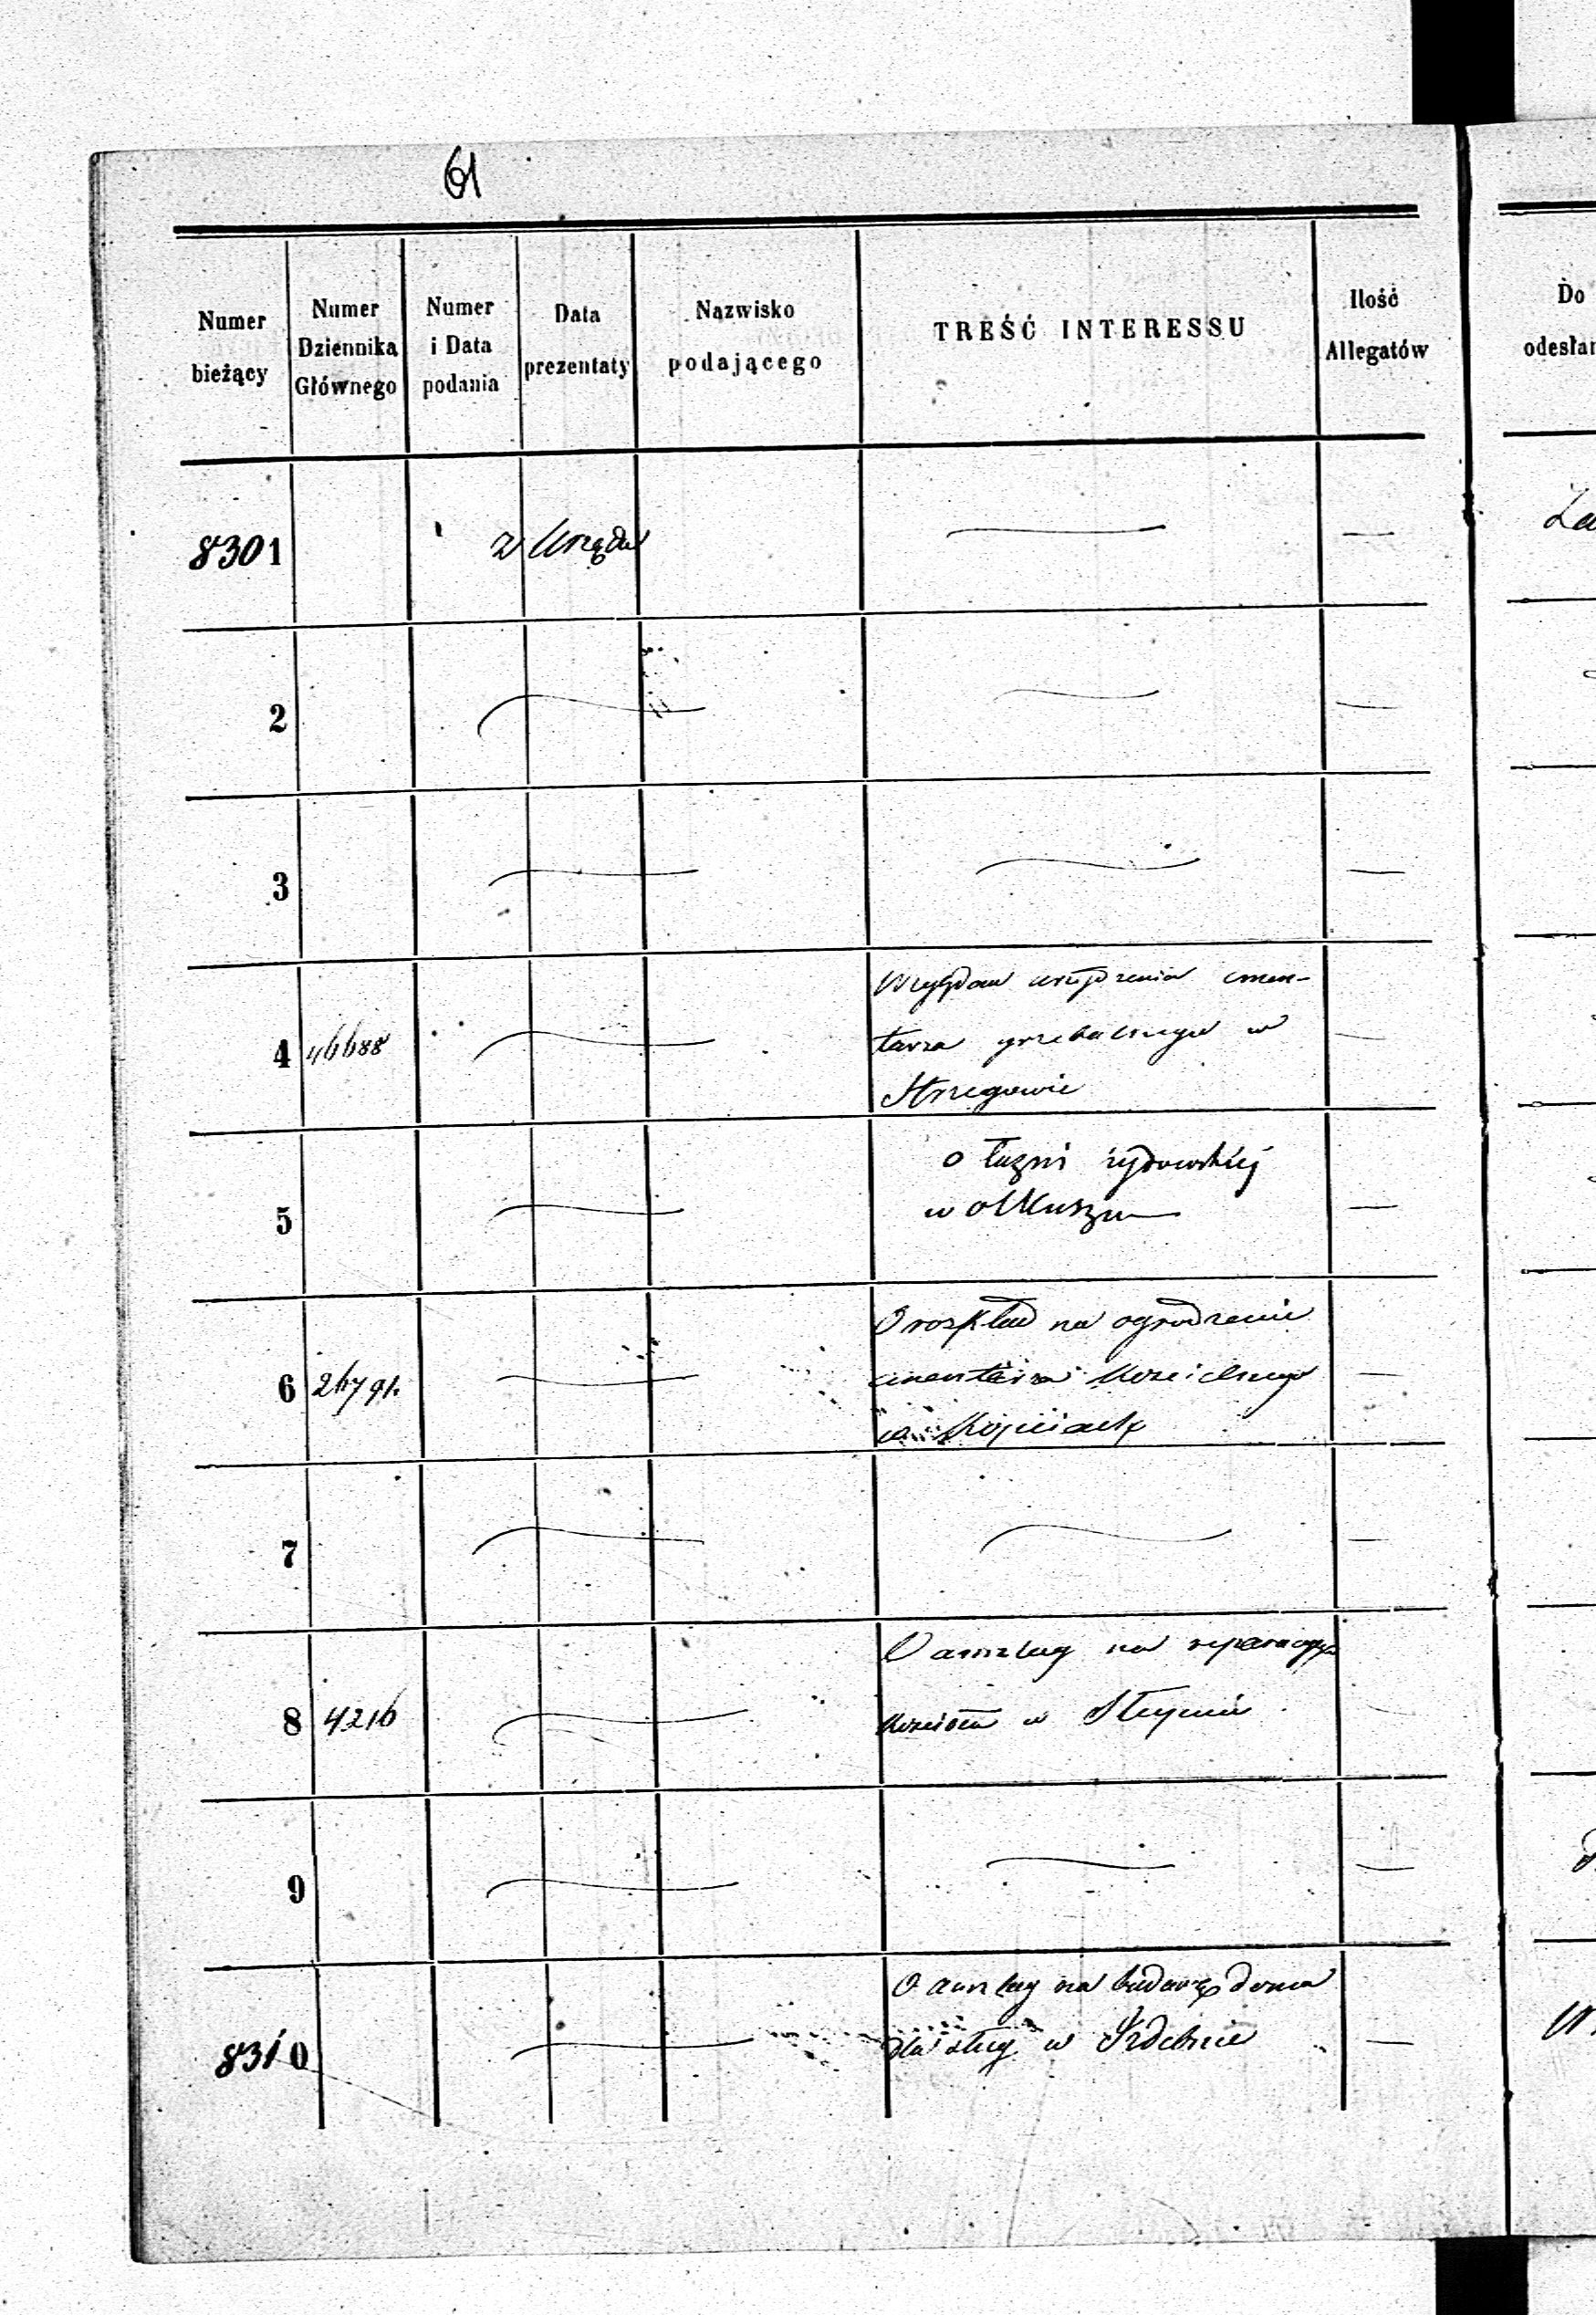 61
Numer bieżący
Numer Dziennika Głównego
Numer i Data podania
Data prezentaty
Nazwisko podającego
TREŚĆ INTERESSU
Ilość Allegatów
Do odesłan
8301 z Urzędu
2
3
4 46688
Względem urządzenia cmen-
tarza grzebalnego w
Strzegowie
5
o łaźni żydowskiej
w olkuszu
6
O rozkład na ogrodzenie
cmentarza kościelnego
w
7
8 4216
O anszlag na reparacyą
kościoła w
9
8310
O anszlag na budowę domu
dla sług w